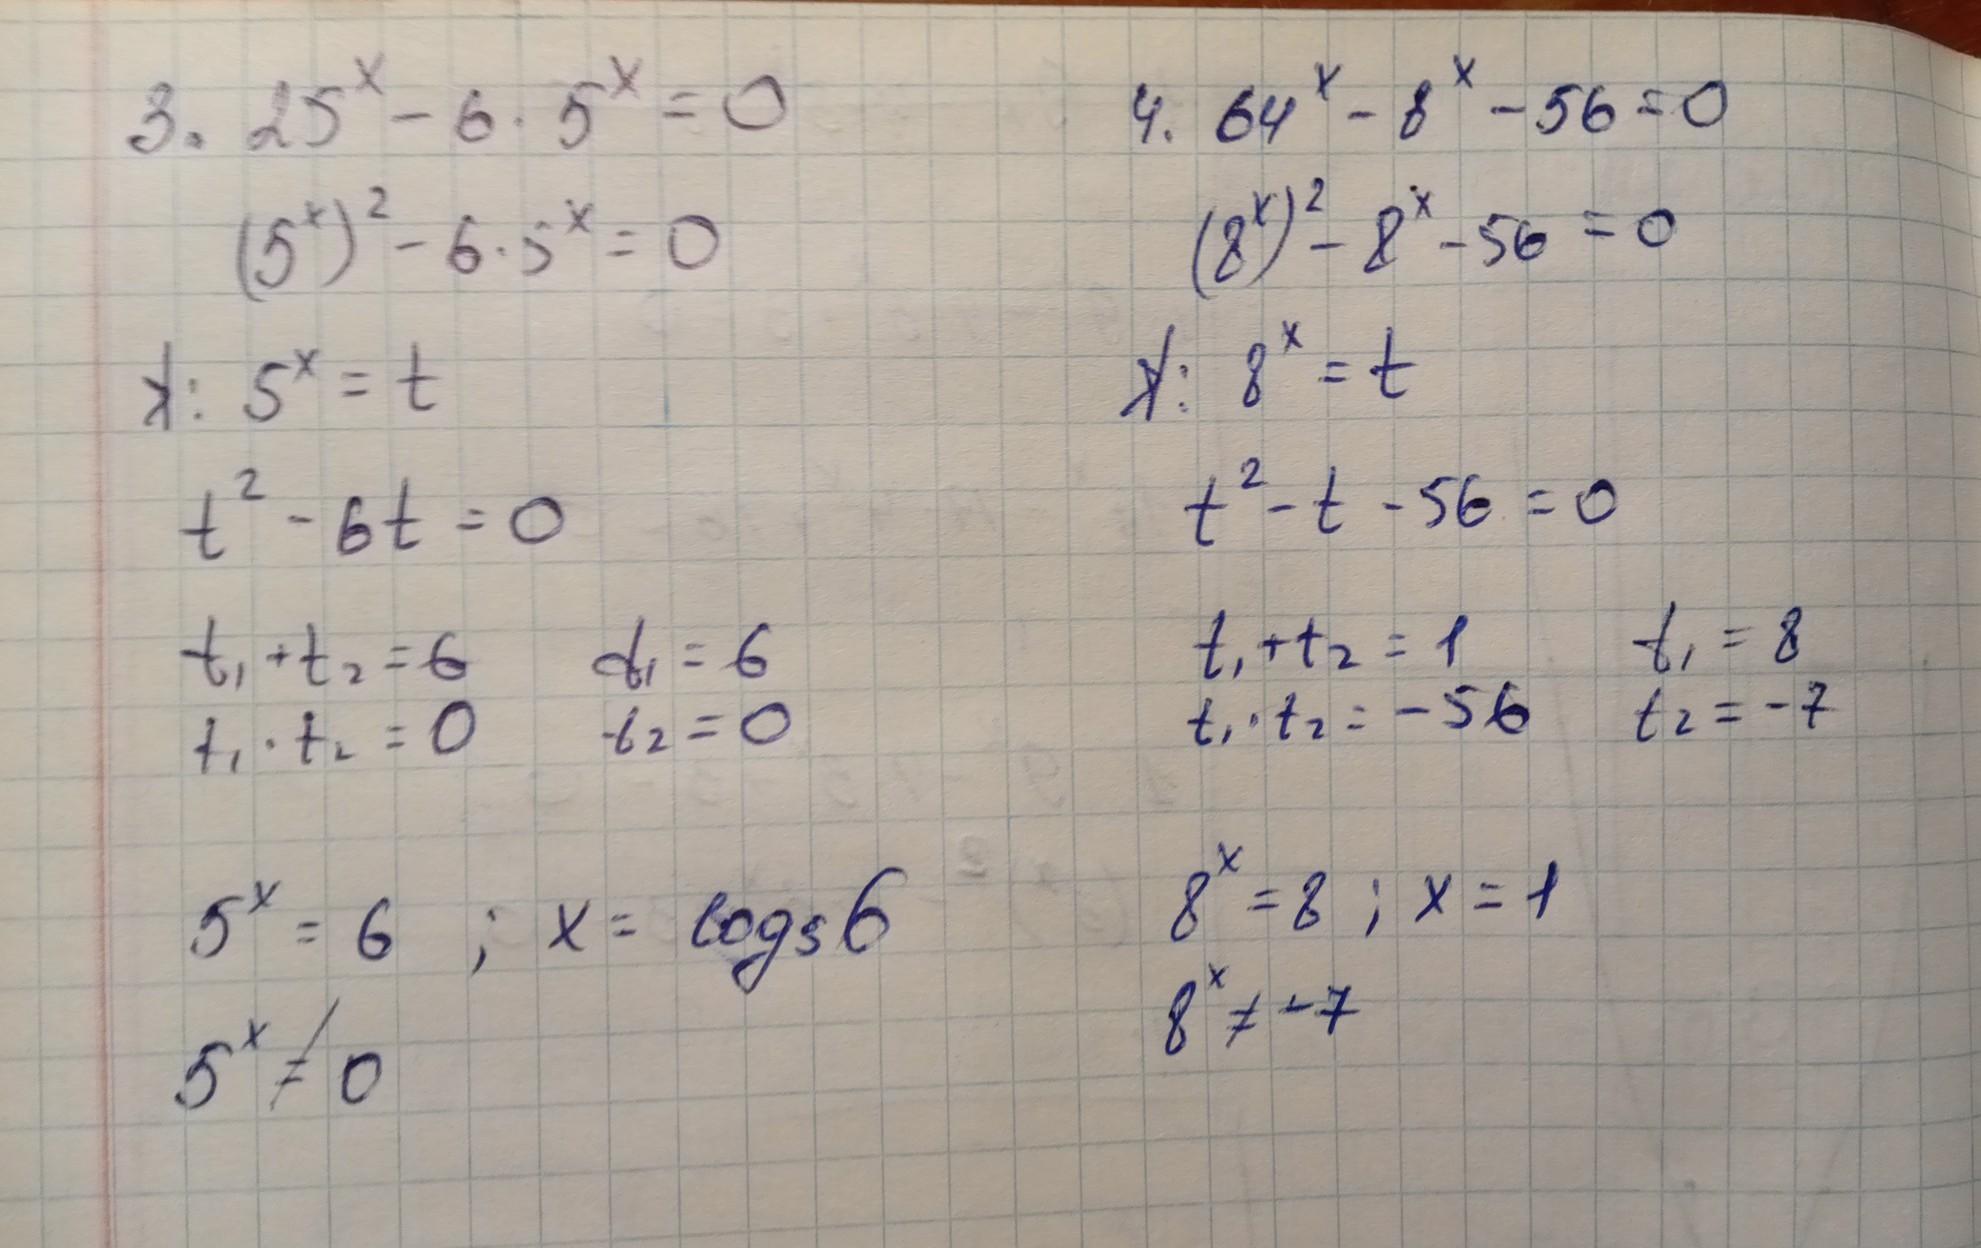 3. 25^x - 6 · 5^x = 0
(5^x)^2 - 6 · 5^x = 0
5^x = t
t^2 - 6t = 0
t₁ + t₂ = 6 t₁ = 6
t₁ · t₂ = 0 t₂ = 0
5^x = 6 ; x = log₅6
5^x ≠ 0
4. 64^x - 8^x - 56 = 0
(8^x)^2 - 8^x - 56 = 0
8^x = t
t^2 - t - 56 = 0
t₁ + t₂ = 1 t₁ = 8
t₁ · t₂ = -56 t₂ = -7
8^x = 8 ; x = 1
8^x ≠ -7